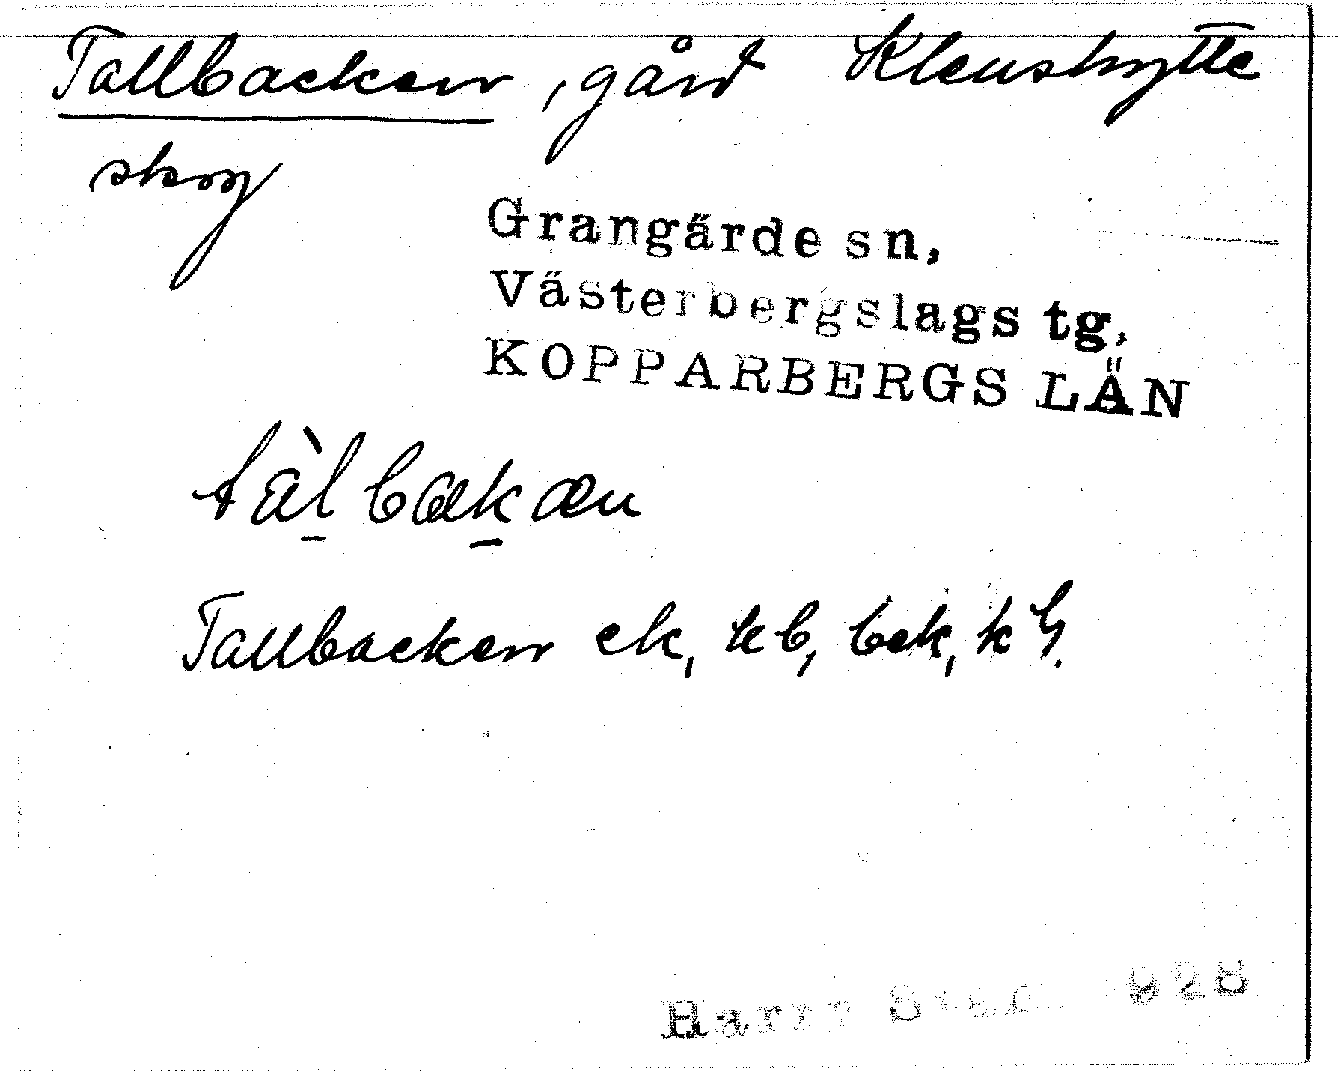 Tallbacken, gård Klenshytte
skog
Grangärde sn,
Västerbergslags tg,
KOPPARBERGS LÄN
tàl̠bæk̠æn
Tallbacken ek, kb, bek,
Harry 928